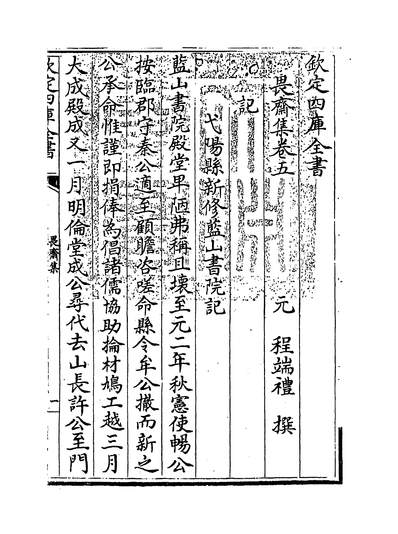 欽定四庫全書
畏齋集卷五
元 程端禮 撰
記
弋陽縣新修藍山書院記
藍山書院殿堂卑陋弗稱且壞至元二年秋憲使暢公
按臨郡守秦公適至顧瞻咨嗟命縣令牟公撤而新之
公承命惟謹即捐俸為倡諸儒協助掄材鳩工越三月
大成殿成又一月明倫堂成公尋代去山長許公至門
欽定四庫全書
畏齋集
一